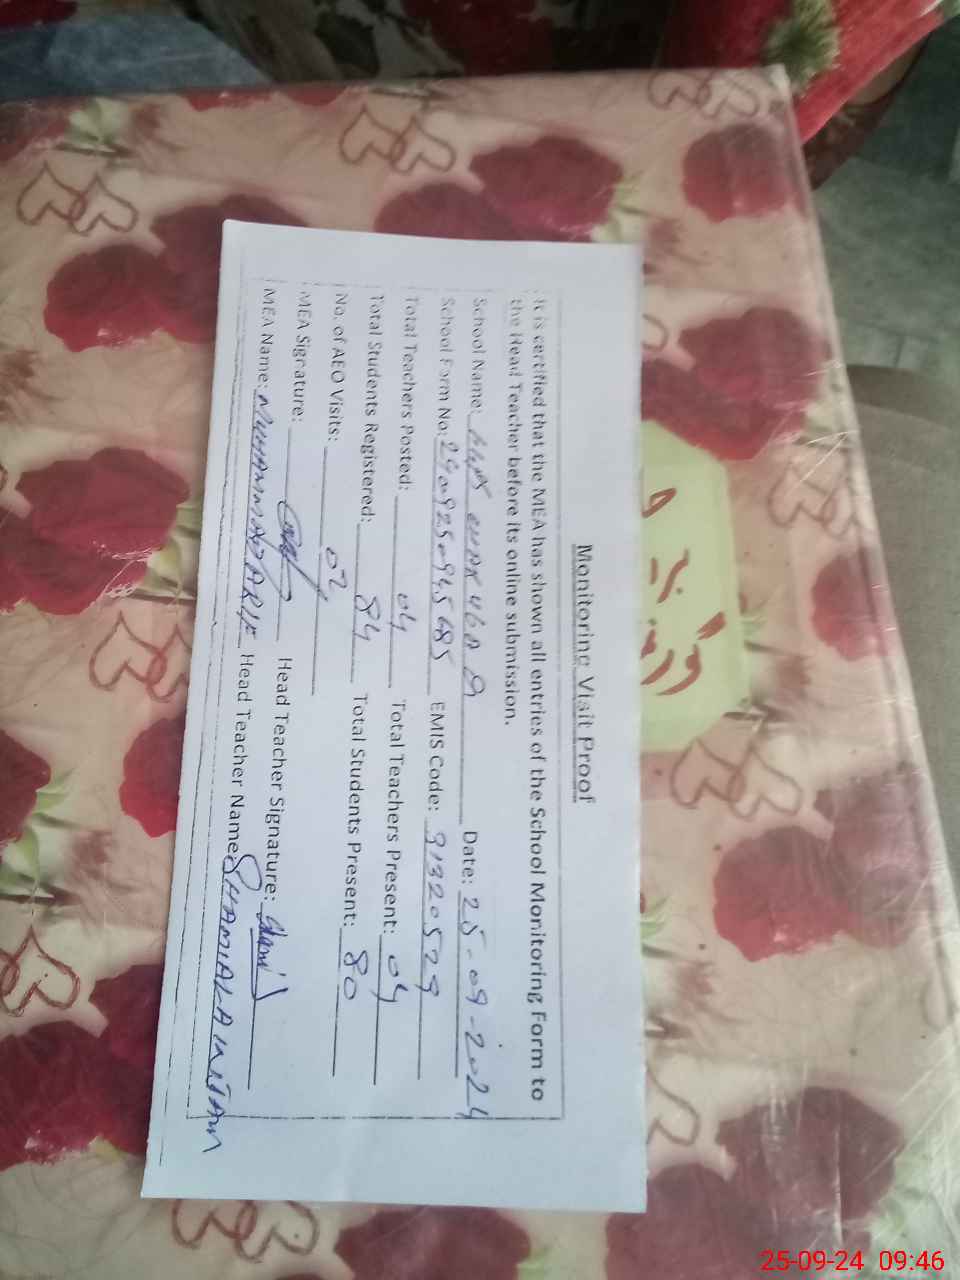 Monitoring Visit Proof
It is certified that the MEA has shown all entries of the School Monitoring Form to
the Head Teacher before its online submission.
School Name: Date: 25-09-2024
School Form No: EMIS Code: 31320529
Total Teachers Posted: 04 Total Teachers Present: 04
Total Students Registered: 84 Total Students Present: 80
No. of AEO Visits: 02
MEA Signature: Head Teacher Signature:
MEA Name: MUHAMMAD ARIF Head Teacher Name:
25-09-24 09:46